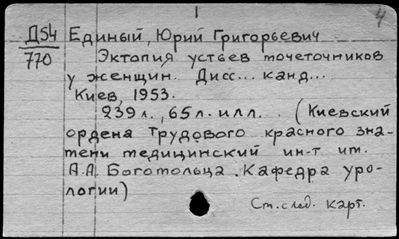 1
4
Д54 Единый, Юрий Григорьевич
770 Эктопия устьев мочеточников
у женщин. Дисс... канд...
Киев, 1953.
239 л., 65 л. илл. (Киевский
ордена Трудового красного зна-
мени медицинский ин-т им.
А.А. Богомольца. Кафедра уро-
логии)
См. след. карт.